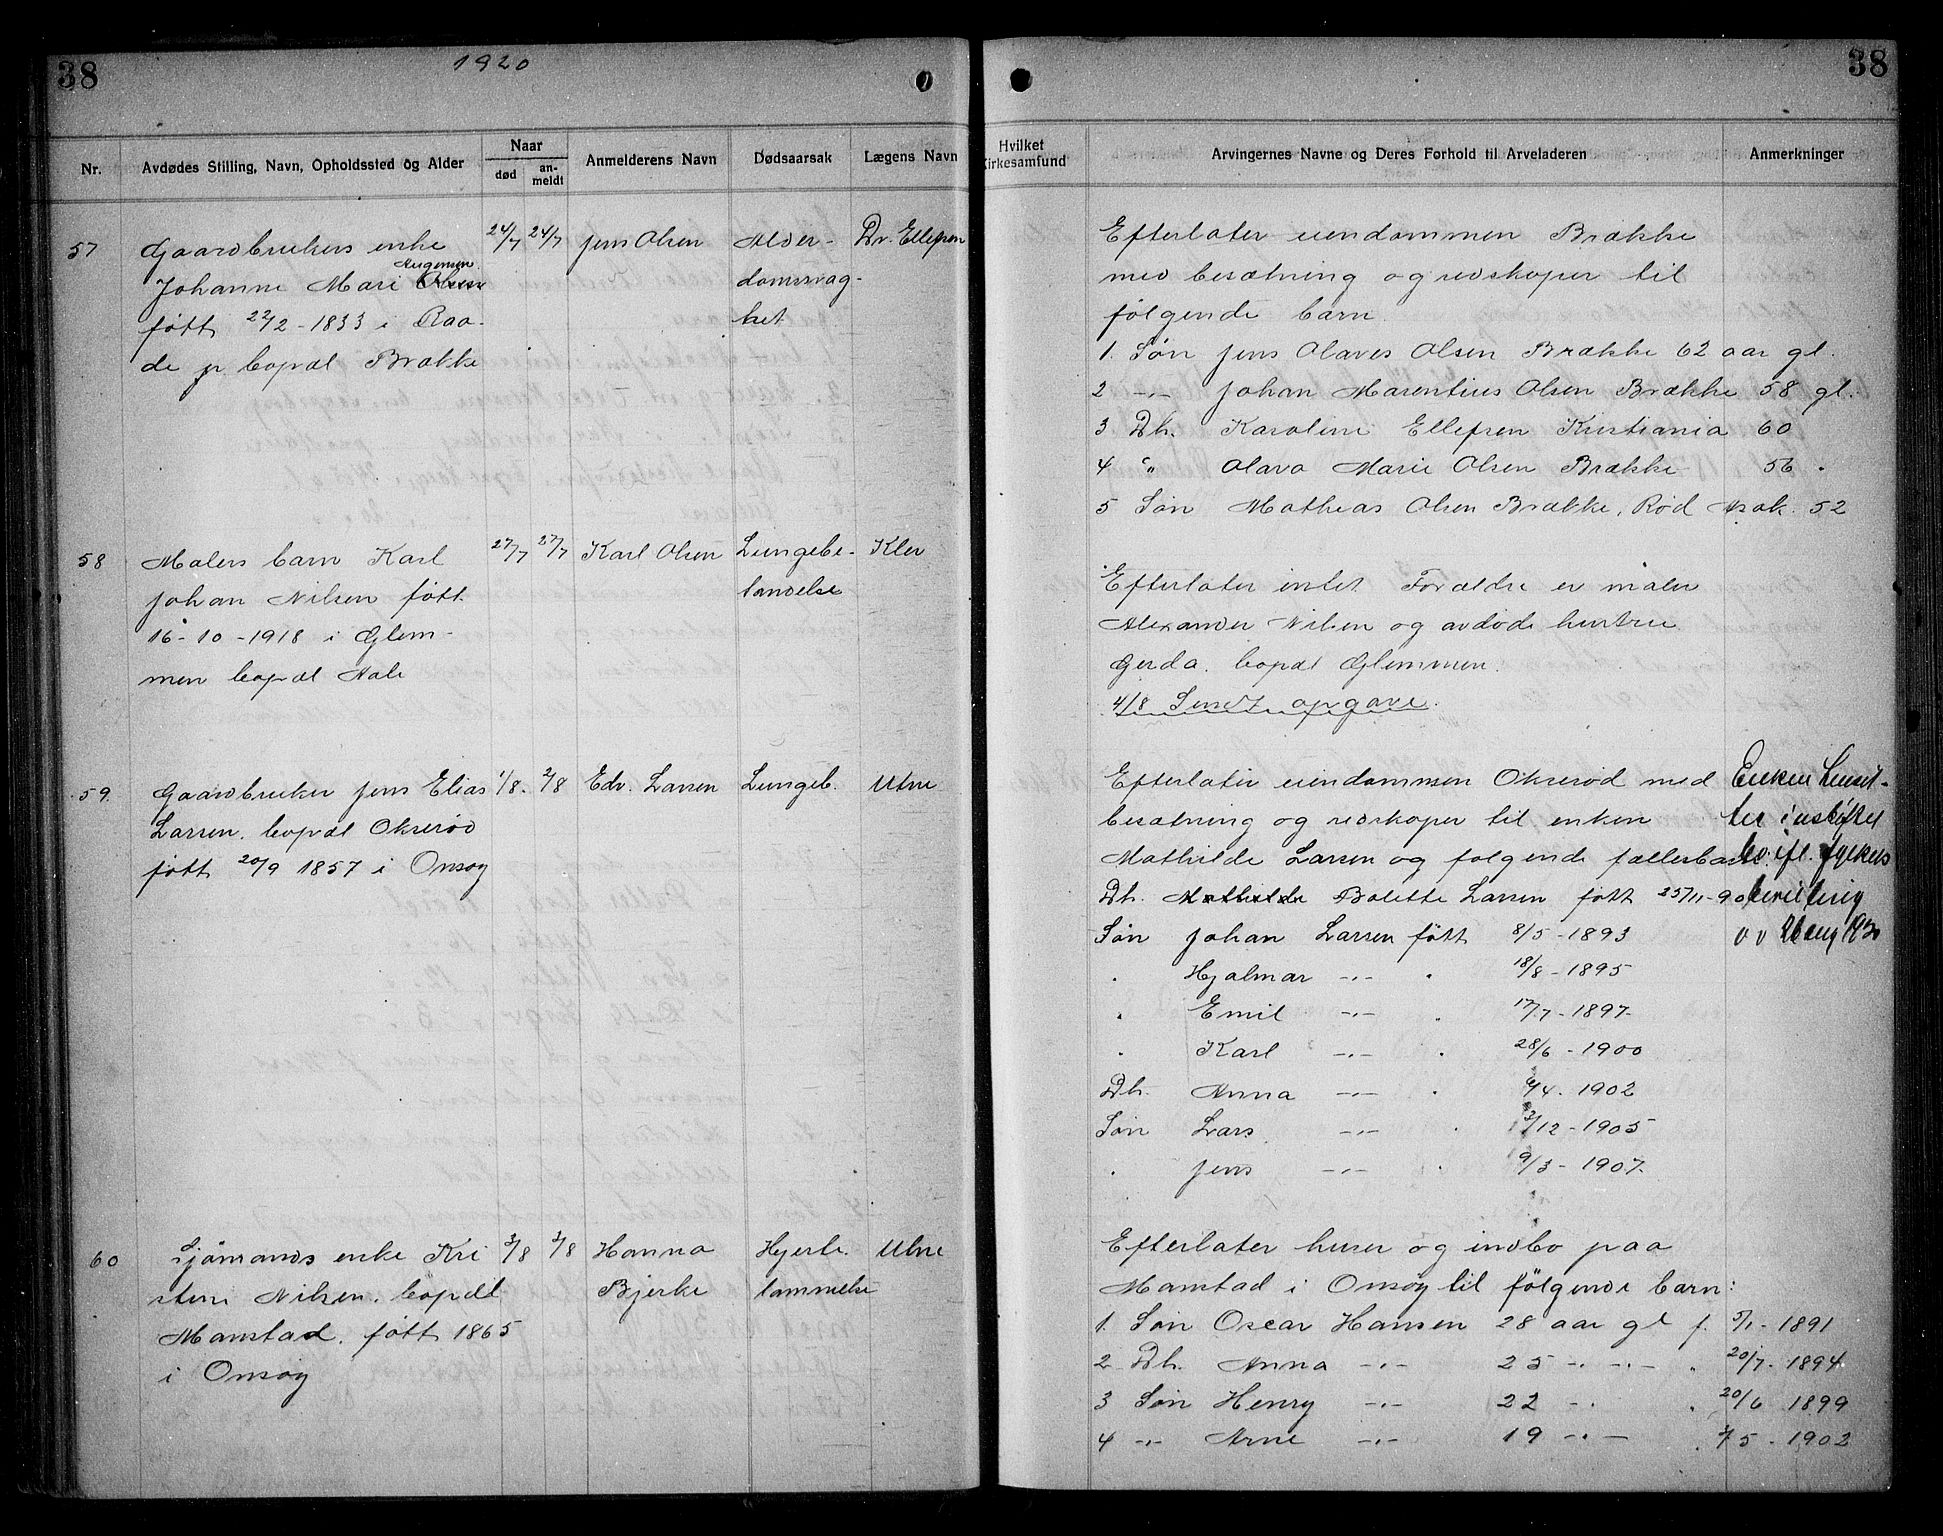 38
1920
Nr.
Avdødes Stilling, Navn, Opholdssted og Alder
Naar
død
an-
meldt
Anmelderens Navn
Dødsaarsak
Lægens Navn
57
Gaardbrukers enke
Johanne Mari Olsen
født 22/2 - 1833 i Raa-
de bopæl Brække
24/7
24/7
Jens Olsen
Alder-
domssvag-
het
Dr. Ellefsen
58
Malers barn Karl
Johan Nilsen født
16-10-1918 i Glem-
men bopæl Hale
27/7
27/7
Karl Olsen
Lungebe-
tændelse
Kler
59.
Gaardbruker Jens Elias
Larsen. bopæl Okserød
født 20/9 1857 i Onsøy
1/8.
2/8
Edv. Larsen
Lungeb.
Utne
60
Sjömands enke Kri
stine Nilsen. bopæl
Manstad. født 1865
i Onsøy
3/8
3/8
Hanna
Bjerke
Hjerte.
lammelse
Utne
38
Hvilket
Kirkesamfund
Arvingernes Navne og Deres Forhold til Arveladeren
Anmerkninger
Efterlater eiendommen Brække
med besætning og redskaper til
følgende barn
1. Søn Jens Olaves Olsen Brække 62 aar gl.
2 -"- Johan Marentius Olsen Brække 58 gl.
3 Dh. Karoline Ellefsen Kristiania 60
4 " Olava Marie Olsen Brække 56 "
5 Søn Mathias Olsen Brække, Rød Asak. 52
Efterlater intet Forældre er maler
Alexander Nilsen og avdøde hustru
Gerda. bopæl Glemmen.
4/8 Sendt opgave.
Efterlater eiendommen Okserød med
besætning og redskaper til enken
Mathilde Larsen og følgende fællesbarn.
Dh. Mathilde Bolette Larsen født 25/11-90
Søn Johan Larsen født 8/5 - 1893
" Hjalmar -"- " 18/8 - 1895
" Emil -"- " 17/7 - 1897
" Karl -"- " 28/6 - 1900
Dh. Anna -"- " 6/4 - 1902
Søn Lars -"- " 3/12 - 1905
" Jens -"- " 9/3 - 1907.
Enken hensit-
ter i uskiftet
bo ifl. fylkets
bevilling
Efterlater huser og indbo paa
Manstad i Onsøy til følgende barn:
1. Søn Oscar Hansen 28 aar gl f. 5/1 - 1891
2 Dh. Anna -"- 25 -"- -"- " 20/7 - 1894
3 Søn Henry -"- 22 -"- " 20/6 1899
4 -"- Arne -"- 19 -"- " 3/5 - 1902